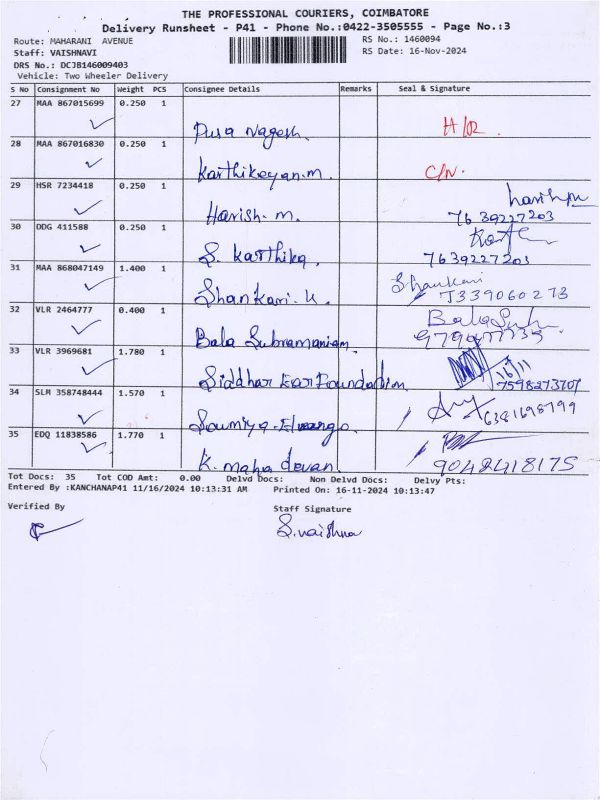 THE PROFESSIONAL COURIERS, COIMBATORE
Delivery Runsheet - P41 - Phone No.:0422-3505555 - Page No.:3
Route: MAHARANI AVENUE
RS No.: 1460094
Staff: VAISHNAVI
RS Date: 16-Nov-2024
DRS No.: DCJB146009403
Vehicle: Two Wheeler Delivery
S No Consignment No Weight PCS Consignee Details Remarks Seal & Signature
27 MAA 867015699 0.250 1
Pusa Nagesh.
28 MAA 867016830 0.250 1
Karthikeyan.m. C/N.
29 HSR 7234418 0.250 1
Harish. m. 7639227203
30 DDG 411588 0.250 1
S. Karthika. 7639227203
31 MAA 868047149 1.400 1
Shankari. K. Shankari
7339060273
32 VLR 2464777 0.400 1
Bala Subramaniam.
33 VLR 3969681 1.780 1
Siddhar Kar Foundation. 16/11
7598273707
34 SLM 358748444 1.570 1
Soumiya 6381698799
35 EDQ 11838586 1.770 1
K. maha devan. 9042418175
Tot Docs: 35 Tot COD Amt: 0.00 Delvd Docs: Non Delvd Docs: Delvy Pts:
Entered By :KANCHANAP41 11/16/2024 10:13:31 AM Printed On: 16-11-2024 10:13:47
Verified By Staff Signature
S.vaishna